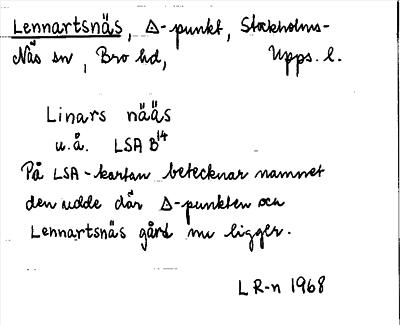 Lennartsnäs, Δ-punkt, Stockholms-
Näs sn, Bro hd, Upps. l.
Linars nääs
u.å. LSA B14
På LSA-kartan betecknar namnet
den udde där Δ-punkten och
Lennartsnäs gård nu ligger.
L R-n 1968